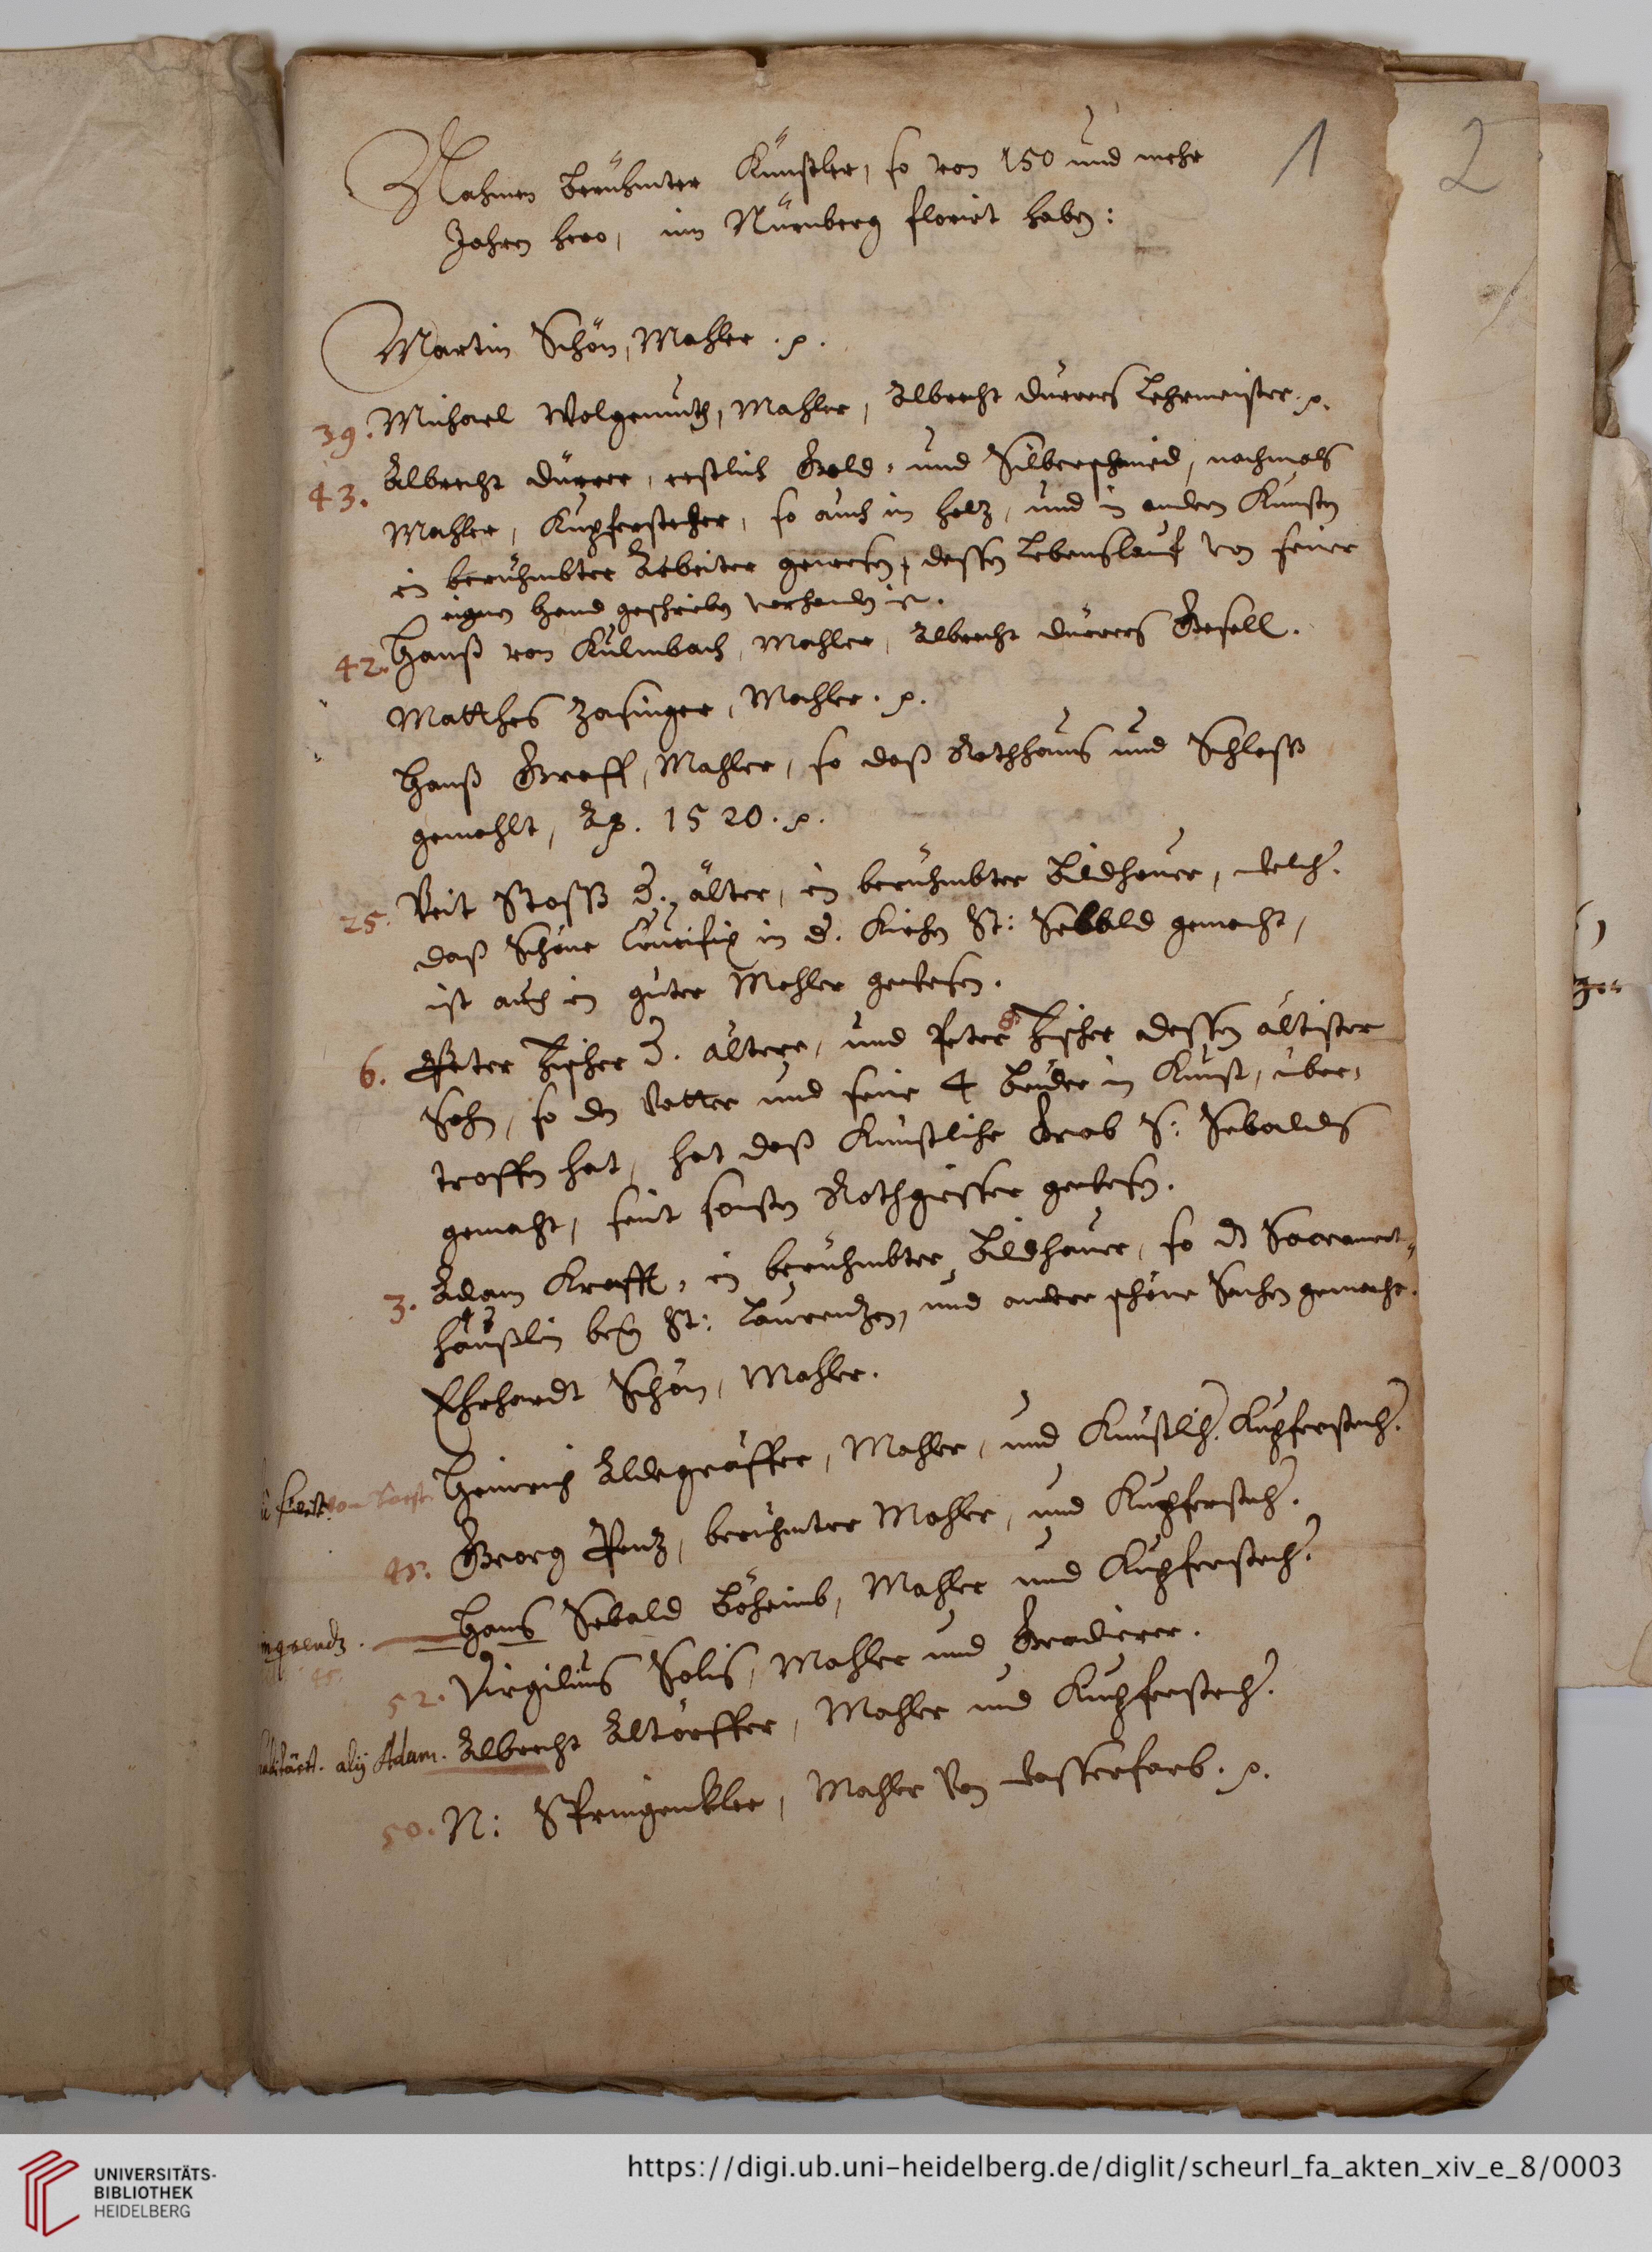 1
2
Nahmen berühmter Künstler, so von 150 und mehr
Jahren hero, inn Nürnberg florirt haben:
Martin Schön, Mahler. p.
39. Michael Wolgemuth, Mahler, Albrecht Dürers Lehrmeister. p.
43. Albrecht Dürrer, erstlich Gold- und Silberschmid, nachmals
Mahler, Kupferstecher, so auch in holz, und in andern Künsten
ein berühmbter Arbeiter gewesen, dessen Lebenslauf von seiner
eignen Hand geschrieben vorhanden ist.
42. Hanß von Kulmbach, Mahler, Albrecht Dürrers Gesell.
Matthes Zasinger, Mahler. p.
Hanß Graff, Mahler, so daß Rathhaus und Schloß
gemahlt, Ao. 1520. p.
25. Veit Stoß d. älter, ein berühmbter Bildhauer, welch.
daß schöne Crucifix in d. Kirchen St: Sebald gemacht,
ist auch ein guter Mahler gewesen.
6. Peter Vischer d. ältere, und Peter 8. Vischer dessen ältister
Sohn, so den Vatter und seine 4 Brüder in Kunst, über-
troffen hat, hat daß Künstliche Grab S: Sebalds
gemacht, seint sonsten Rothgiesser gewesen.
3. Adam Krafft, ein berühmbter Bildhauer, so ds Sacrament-
häußlin bey St: Laurentzen, und andere schöne Sachen gemacht.
Ehrhardt Schön, Mahler.
von Soest. Heinrich Aldegräffer, Mahler, und Künstlich. Kupferstech.
45. Georg Pentz, berühmter Mahler, und Kupferstech.
Hans Sebald Böheimb, Mahler und Kupferstech.
45.
52. Virgilius Solis, Mahler und Gradierer.
alij Adam. Albrecht Altörffer, Mahler und Kupferstech.
50. N: Springenklee, Mahler von wasserfarb. p.
UNIVERSITÄTS-
BIBLIOTHEK
HEIDELBERG
https://digi.ub.uni-heidelberg.de/diglit/scheurl_fa_akten_xiv_e_8/0003